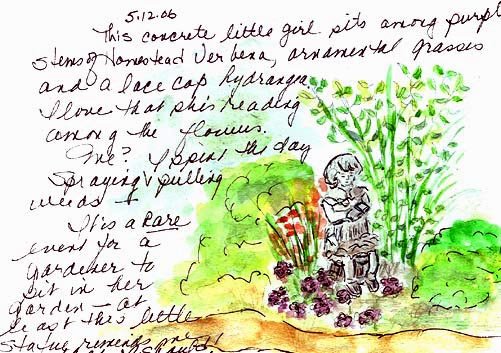 5.12.06
This concrete little girl sits among purple
stems of Homestead Verbena, ornamental grasses
and a lace cap hydrangea
I love that she's reading
among the flowers.
Me? I spent the day
Spraying & pulling
weeds
It's a Rare
event for a
gardener to
sit in her
garden — at
least this little
statue reminds me
I should!